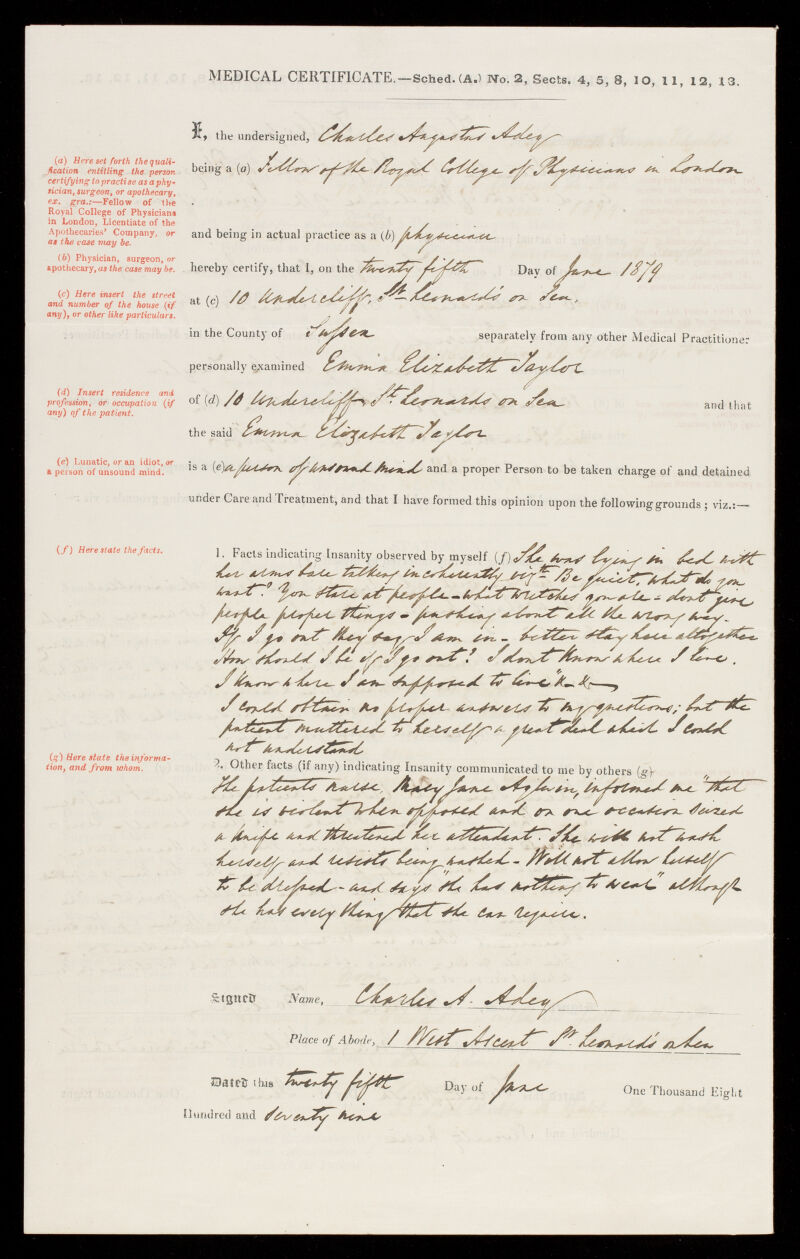 MEDICAL CERTIFICATE.—Sched. (A.) No. 2, Sects. 4, 5, 8, 10, 11, 12, 13.
I, the undersigned, Charles Augustus Adey
(a) Here set forth the quali-
fication entitling the person
certifying to practise as a phy-
sician, surgeon, or apothecary,
ex. gra.:—Fellow of the
Royal College of Physicians
in London, Licentiate of the
Apothecaries' Company, or
as the case may be.
being a (a) Fellow of the Royal College of Physicians in London
and being in actual practice as a (b) physician
(b) Physician, surgeon, or
apothecary, as the case may be.
hereby certify, that I, on the twenty fifth Day of June 1879
(c) Here insert the street
and number of the house (if
any), or other like particulars.
at (c) 10 Undercliff, St. Leonard's on Sea,
in the County of Sussex separately from any other Medical Practitioner
personally examined Emma Elizabeth Taylor
(d) Insert residence and
profession, or occupation (if
any) of the patient.
of (d) 10 Undercliff St Leonards on Sea and that
the said Emma Elizabeth Taylor
(e) Lunatic, or an idiot, or
a person of unsound mind.
is a (e) a person of unsound mind and a proper Person to be taken charge of and detained
under Care and Treatment, and that I have formed this opinion upon the following grounds; viz.:—
(f) Here state the facts.
1. Facts indicating Insanity observed by myself (f) She was lying in bed with
her arms bare talking incoherently vizt Be quiet, what do you
want? You stare at people - what wretches you are - dont give
people proper things - pushing about all the wrong way.
If I go out they say I am in - better stay here altogether
How should I be if I go out? I dont know where I live.
I know where I am supposed to live" &c &c
I could obtain no proper answers to my questions; but the
patient muttered to herself a great deal which I could
not understand
(g) Here state the informa-
tion, and from whom.
2. Other facts (if any) indicating Insanity communicated to me by others (g)
The patients nurse, Mary Jane informed me "that
she is violent when opposed and on one occasion seized
a knife and threatened her attendant. She will not wash
herself and resists being washed - Will not allow herself
to be dressed - and says "she has nothing to wear" although
she has every thing that she can require.
Signed Name, Charles A. Adey
Place of Abode, 1 West Ascent St. Leonard's on Sea
Dated this twenty fifth Day of June One Thousand Eight
Hundred and seventy nine